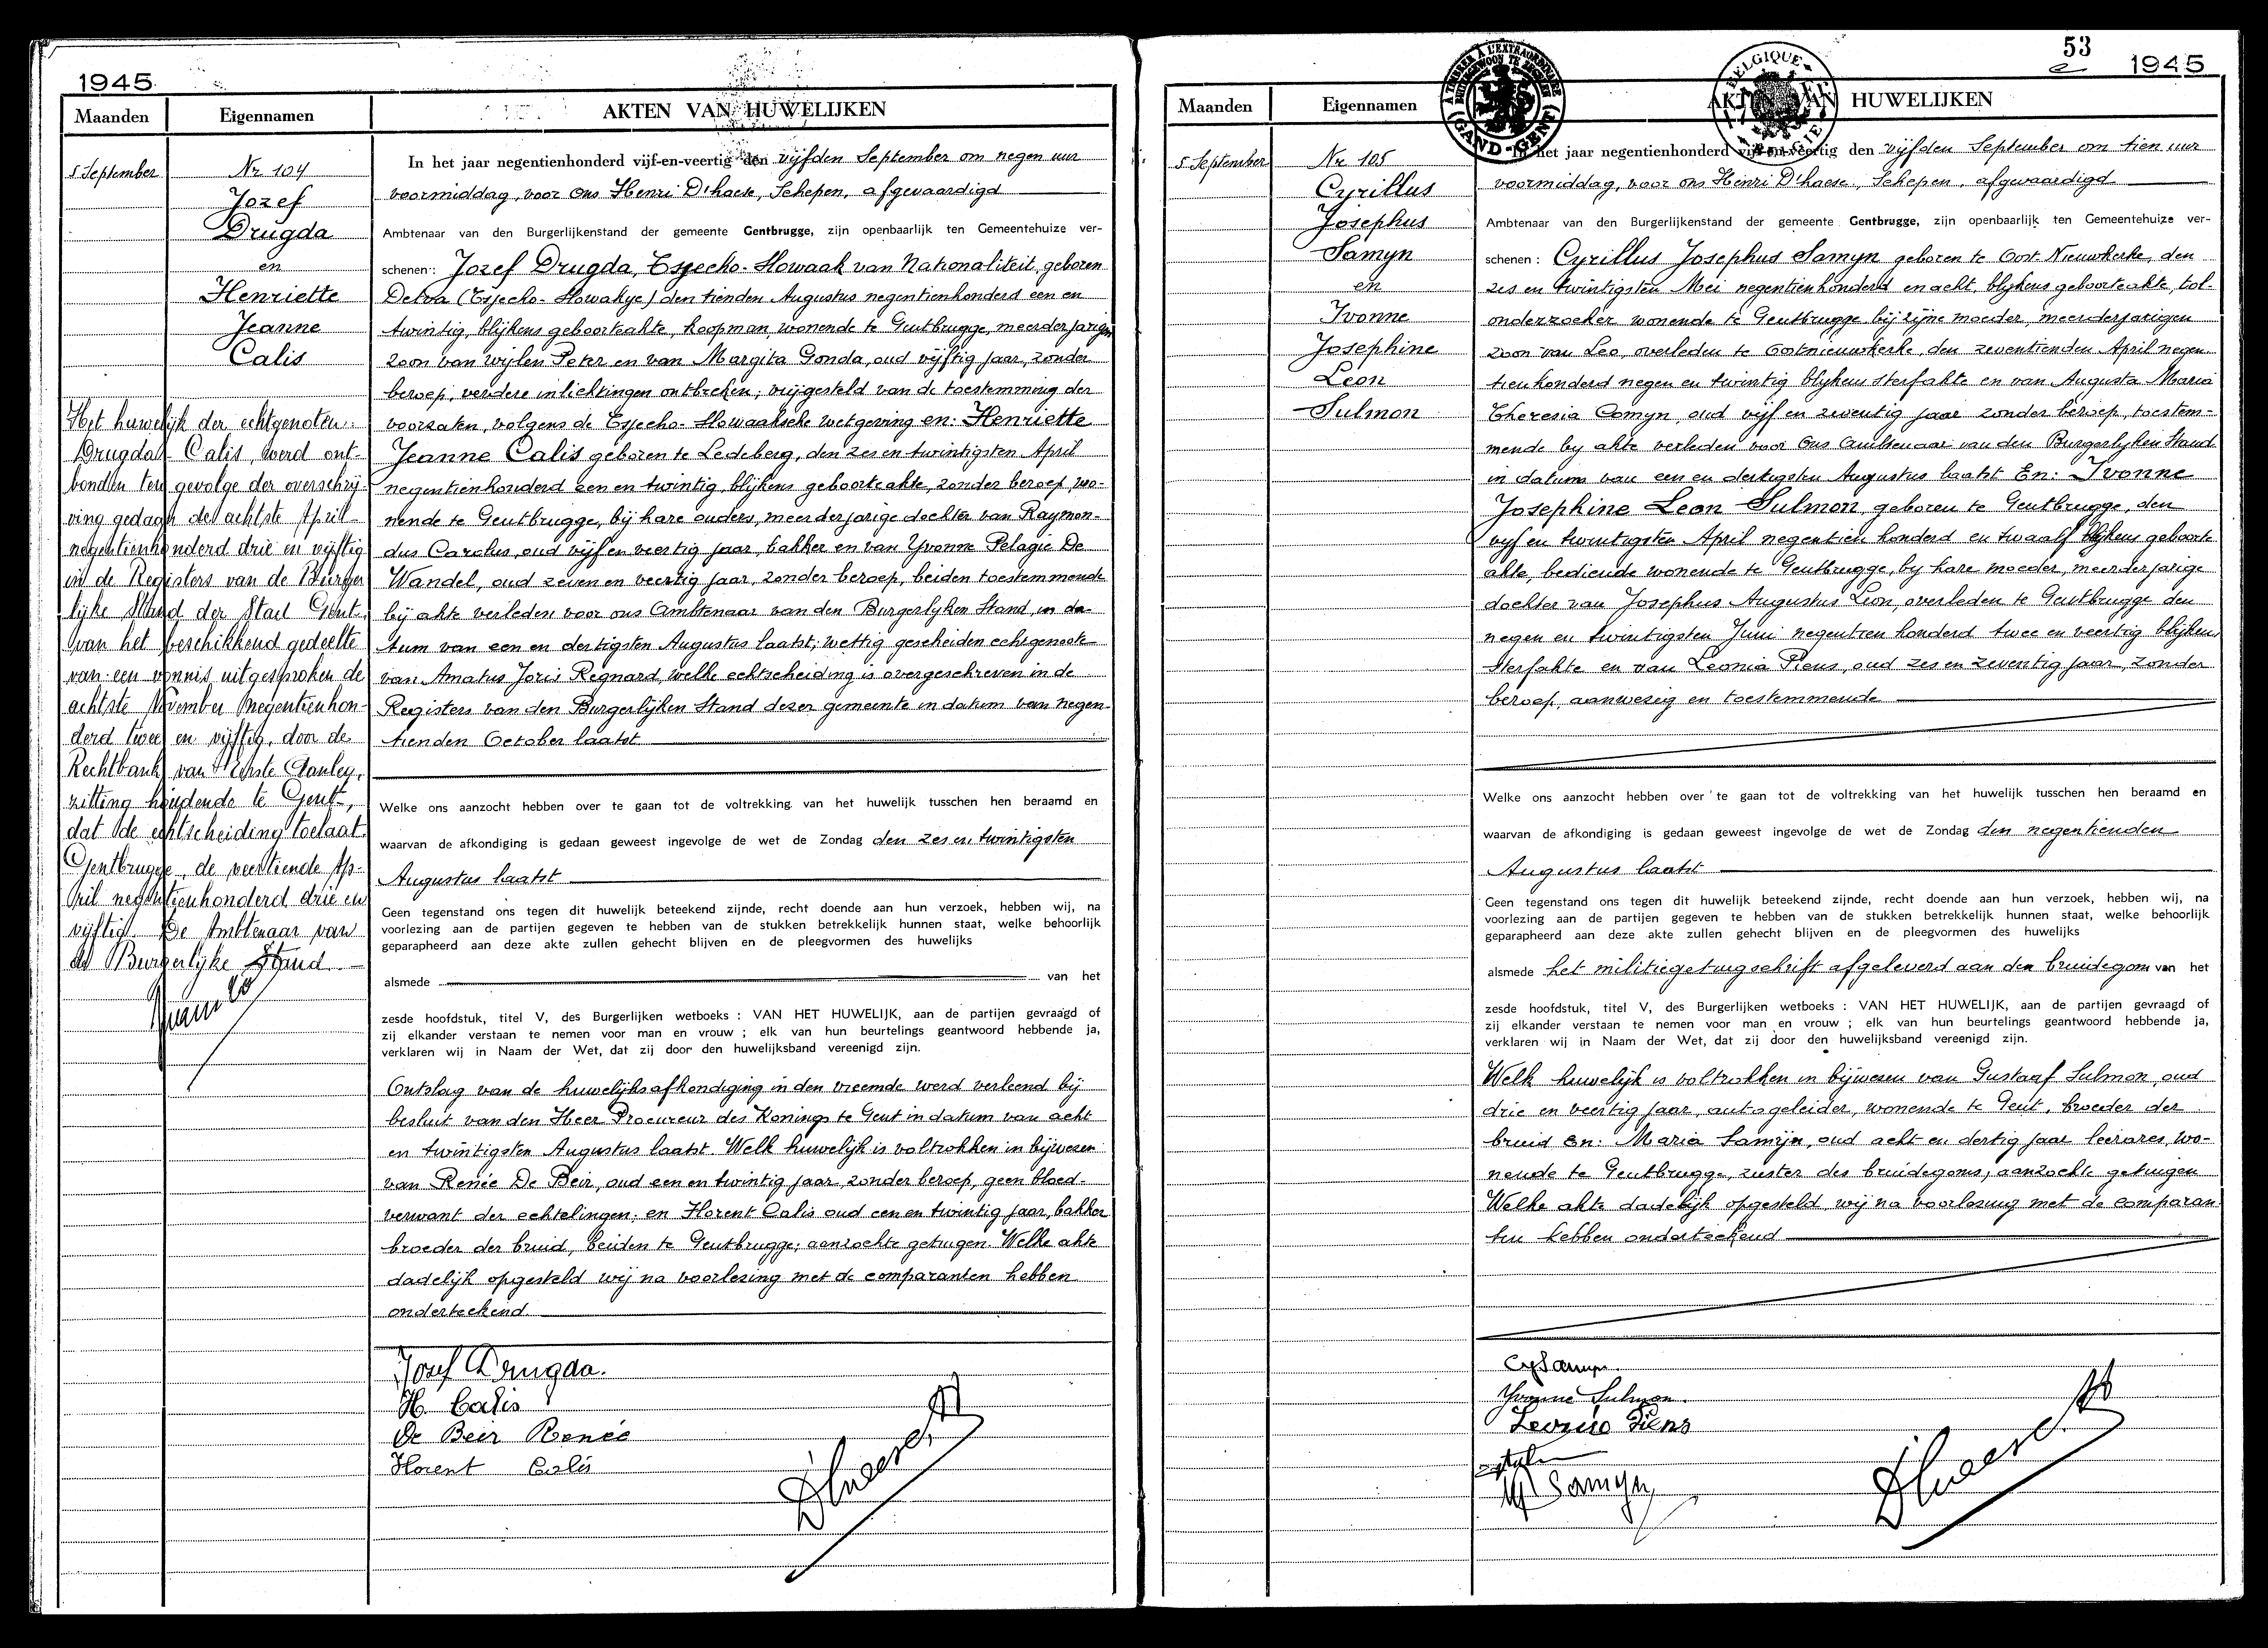 1945
Maanden
Eigennamen
AKTEN VAN HUWELIJKEN
5 September
Nr 104
Jozef
Drugda
en
Henriette
Jeanne
Calis
Het huwelijk der echtgenoten:
Drugda - Calis, werd ont-
bonden ten gevolge der overschrij-
ving gedagn de achtste April
negentienhonderd drie en vijftig
in de Registers van de Burger
lijke Stand der Stad Gent,
van het beschikkend gedeelte
van een vonnis uitgesproken de
achtste November negentienhon-
derd twee en vijftig, door de
Rechtbank van Eerste Aanleg,
zitting houdende te Gent,
dat de echtscheiding toelaat.
Gentbrugge, de veertiende Ap-
ril negentienhonderd drie en
vijftig. De Ambtenaar van
de Burgerlijke Stand
In het jaar negentienhonderd vijf-en-veertig den vijfden September om negen uur
voormiddag, voor ons Henri D'haese, Schepen, afgevaardigd
Ambtenaar van den Burgerlijkenstand der gemeente Gentbrugge, zijn openbaarlijk ten Gemeentehuize ver-
schenen: Jozef Drugda, Tsjecho-Slowaak van Nationaliteit, geboren
Detva (Tsjecho-Slowakije) den tienden Augustus negentienhonderd een en
twintig, blijkens geboorteakte, koopman, wonende te Gentbrugge, meerderjarigen
zoon van wijlen Peter en van Margita Gonda, oud vijftig jaar, zonder
beroep, verdere inlichtingen ontbreken; vrijgesteld van de toestemming der
voorzaten, volgens de Tsjecho-Slowaaksche wetgeving en: Henriette
Jeanne Calis geboren te Ledeberg, den zes en twintigsten April
negentienhonderd een en twintig, blijkens geboorteakte, zonder beroep, wo-
nende te Gentbrugge, bij hare ouders, meerderjarige dochter van Raymon-
dus Carolus, oud vijf en veertig jaar, bakker en van Yvonne Pelagie De
Wandel, oud zeven en veertig jaar, zonder beroep, beiden toestemmende
bij akte verleden voor ons Ambtenaar van den Burgerlyken Stand in da-
tum van een en dertigsten Augustus laatst; wettig gescheiden echtgenoote
van Amatus Joris Regnard, welke echtscheiding is overgeschreven in de
Registers van den Burgerlijken Stand dezer gemeente in datum van negen-
tienden October laatst
Welke ons aanzocht hebben over te gaan tot de voltrekking van het huwelijk tusschen hen beraamd en
waarvan de afkondiging is gedaan geweest ingevolge de wet de Zondag den zes en twintigsten
Augustus laatst
Geen tegenstand ons tegen dit huwelijk beteekend zijnde, recht doende aan hun verzoek, hebben wij, na
voorlezing aan de partijen gegeven te hebben van de stukken betrekkelijk hunnen staat, welke behoorlijk
geparapheerd aan deze akte zullen gehecht blijven en de pleegvormen des huwelijks
alsmede van het
zesde hoofdstuk, titel V, des Burgerlijken wetboeks : VAN HET HUWELIJK, aan de partijen gevraagd of
zij elkander verstaan te nemen voor man en vrouw ; elk van hun beurtelings geantwoord hebbende ja,
verklaren wij in Naam der Wet, dat zij door den huwelijksband vereenigd zijn.
Ontslag van de huwelijksafkondiging in den vreemde werd verleend bij
besluit van den Heer Procureur des Konings te Gent in datum van acht
en twintigsten Augustus laatst. Welk huwelijk is voltrokken in bijwezen
van Renée De Beir, oud een en twintig jaar, zonder beroep, geen bloed-
verwant der echtelingen; en Florent Calis oud een en twintig jaar, bakker
broeder der bruid, beiden te Gentbrugge; aanzochte getuigen. Welke akte
dadelijk opgesteld wij na voorlezing met de comparanten hebben
onderteekend
Josef Drugda.
H. Calis
De Beir Renée
Florent Calis
D'haese
53
1945
Maanden
Eigennamen
AKTEN VAN HUWELIJKEN
A TIMBRER A L'EXTRAORDINAIRE
BUITENGEWOON TE ZEGELEN
(GAND-GENT)
BELGIQUE
BELGIE
5 September
Nr 105
Cyrillus
Josephus
Samyn
en
Ivonne
Josephine
Leon
Sulmon
In het jaar negentienhonderd vijf-en-veertig den vijfden September om tien uur
voormiddag, voor ons Henri D'haese, Schepen, afgevaardigd
Ambtenaar van den Burgerlijkenstand der gemeente Gentbrugge, zijn openbaarlijk ten Gemeentehuize ver-
schenen : Cyrillus Josephus Samyn geboren te Oost-Nieuwkerke, den
zes en twintigsten Mei negentienhonderd en acht, blykens geboorteakte, tol-
onderzoeker wonende te Gentbrugge bij zijne moeder, meerderjarigen
zoon van Leo, overleden te Oostnieuwkerke, den zeventienden April negen
tienhonderd negen en twintig blykens sterfakte en van Augusta Maria
Theresia Comyn, oud vijf en zeventig jaar zonder beroep, toestem-
mende by akte verleden voor ons Ambtenaar van den Burgerlyken Stand
in datum van een en dertigsten Augustus laatst En: Ivonne
Josephine Leon Sulmon, geboren te Gentbrugge, den
vyf en twintigsten April negentien honderd en twaalf blykens geboorte
akte, bediende wonende te Gentbrugge, by hare moeder, meerderjarige
dochter van Josephus Augustus Leon, overleden te Gentbrugge den
negen en twintigsten Juni negentien honderd twee en veertig blijkens
sterfakte en van Leonia Piens, oud zes en zeventig jaar, zonder
beroep, aanwezig en toestemmende
Welke ons aanzocht hebben over te gaan tot de voltrekking van het huwelijk tusschen hen beraamd en
waarvan de afkondiging is gedaan geweest ingevolge de wet de Zondag den negentienden
Augustus laatst
Geen tegenstand ons tegen dit huwelijk beteekend zijnde, recht doende aan hun verzoek, hebben wij, na
voorlezing aan de partijen gegeven te hebben van de stukken betrekkelijk hunnen staat, welke behoorlijk
geparapheerd aan deze akte zullen gehecht blijven en de pleegvormen des huwelijks
alsmede het militiegetuigschrift afgeleverd aan den bruidegom van het
zesde hoofdstuk, titel V, des Burgerlijken wetboeks : VAN HET HUWELIJK, aan de partijen gevraagd of
zij elkander verstaan te nemen voor man en vrouw ; elk van hun beurtelings geantwoord hebbende ja,
verklaren wij in Naam der Wet, dat zij door den huwelijksband vereenigd zijn.
Welk huwelijk is voltrokken in bijwezen van Gustaaf Sulmon, oud
drie en veertig jaar, autogeleider, wonende te Gent, broeder der
bruid en: Maria Samijn, oud acht en dertig jaar leerares, wo-
nende te Gentbrugge, zuster des bruidegoms, aanzochte getuigen
Welke akte dadelijk opgesteld wij na voorlezing met de comparan
ten hebben onderteekend
Cyr Samyn
Yvonne Sulmon.
Leonie Piens
M Samyn
D'haese